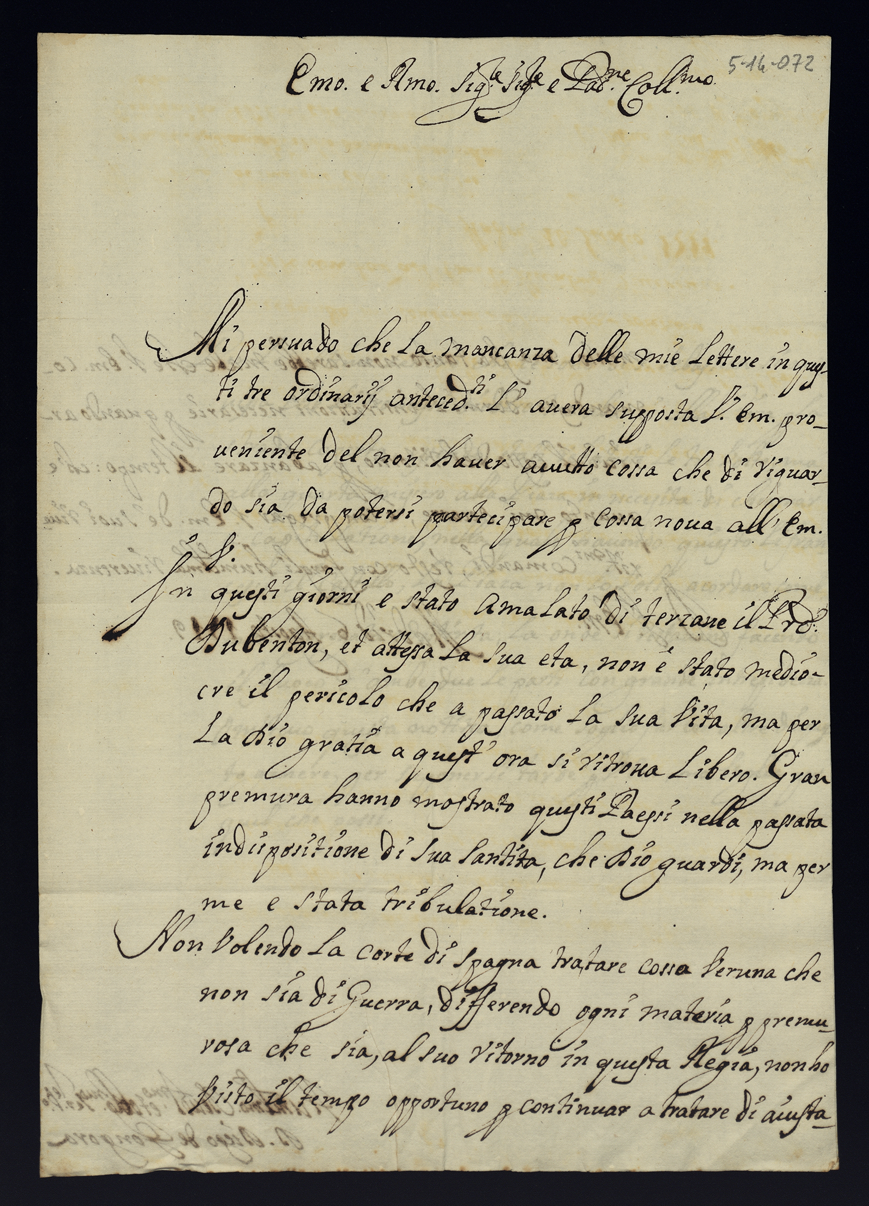 5-14-072
Emo. e Rmo. Sig.re Sig.re e Pad.ne Coll.mo
Mi persuado che la mancanza delle mie lettere in ques-
ti tre ordinarij anteced.ti l'avera supposta V. Em. pro-
veniente del non haver avutto cossa che di riguar-
do sia da potersi partecipare p cossa nova all'Em.
V.
In questi giorni e stato amalato di terzane il Prd.
Dubenton, et attessa la sua eta, non è stato medio-
cre il pericolo che a passato la sua Vita, ma per
la Dio gratia a quest'ora si ritrova libero. Gran
premura hanno mostrato questi Paessi nella passata
indispositione di Sua Santita, che Dio guardi, ma per
me e stata tribulatione.
Non Volendo la corte di Spagna tratare cossa Veruna che
non sia di Guerra, differendo ogni materia p premu-
rosa che sia, al suo ritorno in questa Regia, non ho
Visto il tempo opportuno p continuar a tratare di aiusta-